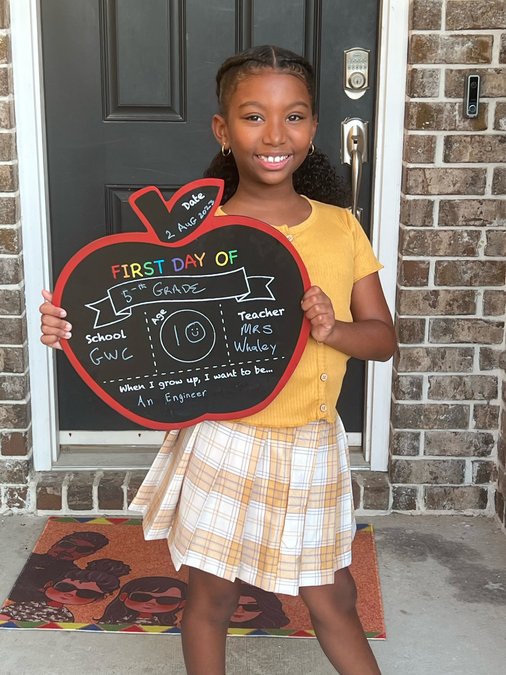 Date
2 AUG 2023
FIRST DAY OF
5-TH GRADE
School
GWC
Age
10
Teacher
MRS
Whaley
When I grow up, I want to be...
An Engineer